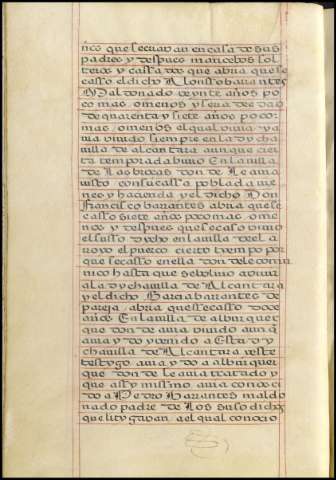 ños que se criavan en casa de sus
padres y despues mancebos sol
teros y cassados que abra que se
casso el dicho Alonsso barrantes
Maldonado veynte años po
co mas o menos y sera de edad
de quarenta y siete años poco
mas o menos el qual vivia y a
via vivido siempre en la dycha
villa de alcantara aunque cier
ta temporada bivio En la villa
de Las brocas donde Le avia
visto con su cassa poblada me
neo y hacienda y el dicho Don
Francisco barrantes abria que se
casso siete años poco mas o me
nos y despues que se caso bivio
el susso dycho en la villa del a
rroyo el puerco cierto tiempo por
que se casso en ella donde le comu
nico hasta que se bolvio a vivir
a la dycha villa de Alcantara
y el dicho Garcia barrantes de
pareja abria que se casso doce
años En la villa de alburquer
que donde avia vivido aunq
avia ydo y venido a Esta dy
cha villa de Alcantara y este
testygo avia ydo a alburquer
que donde le avia tratado y
que assy missmo avia conoci
do a Pedro barrantes maldo
nado padre de Los suso dichos
que lityguavan a el qual conocio